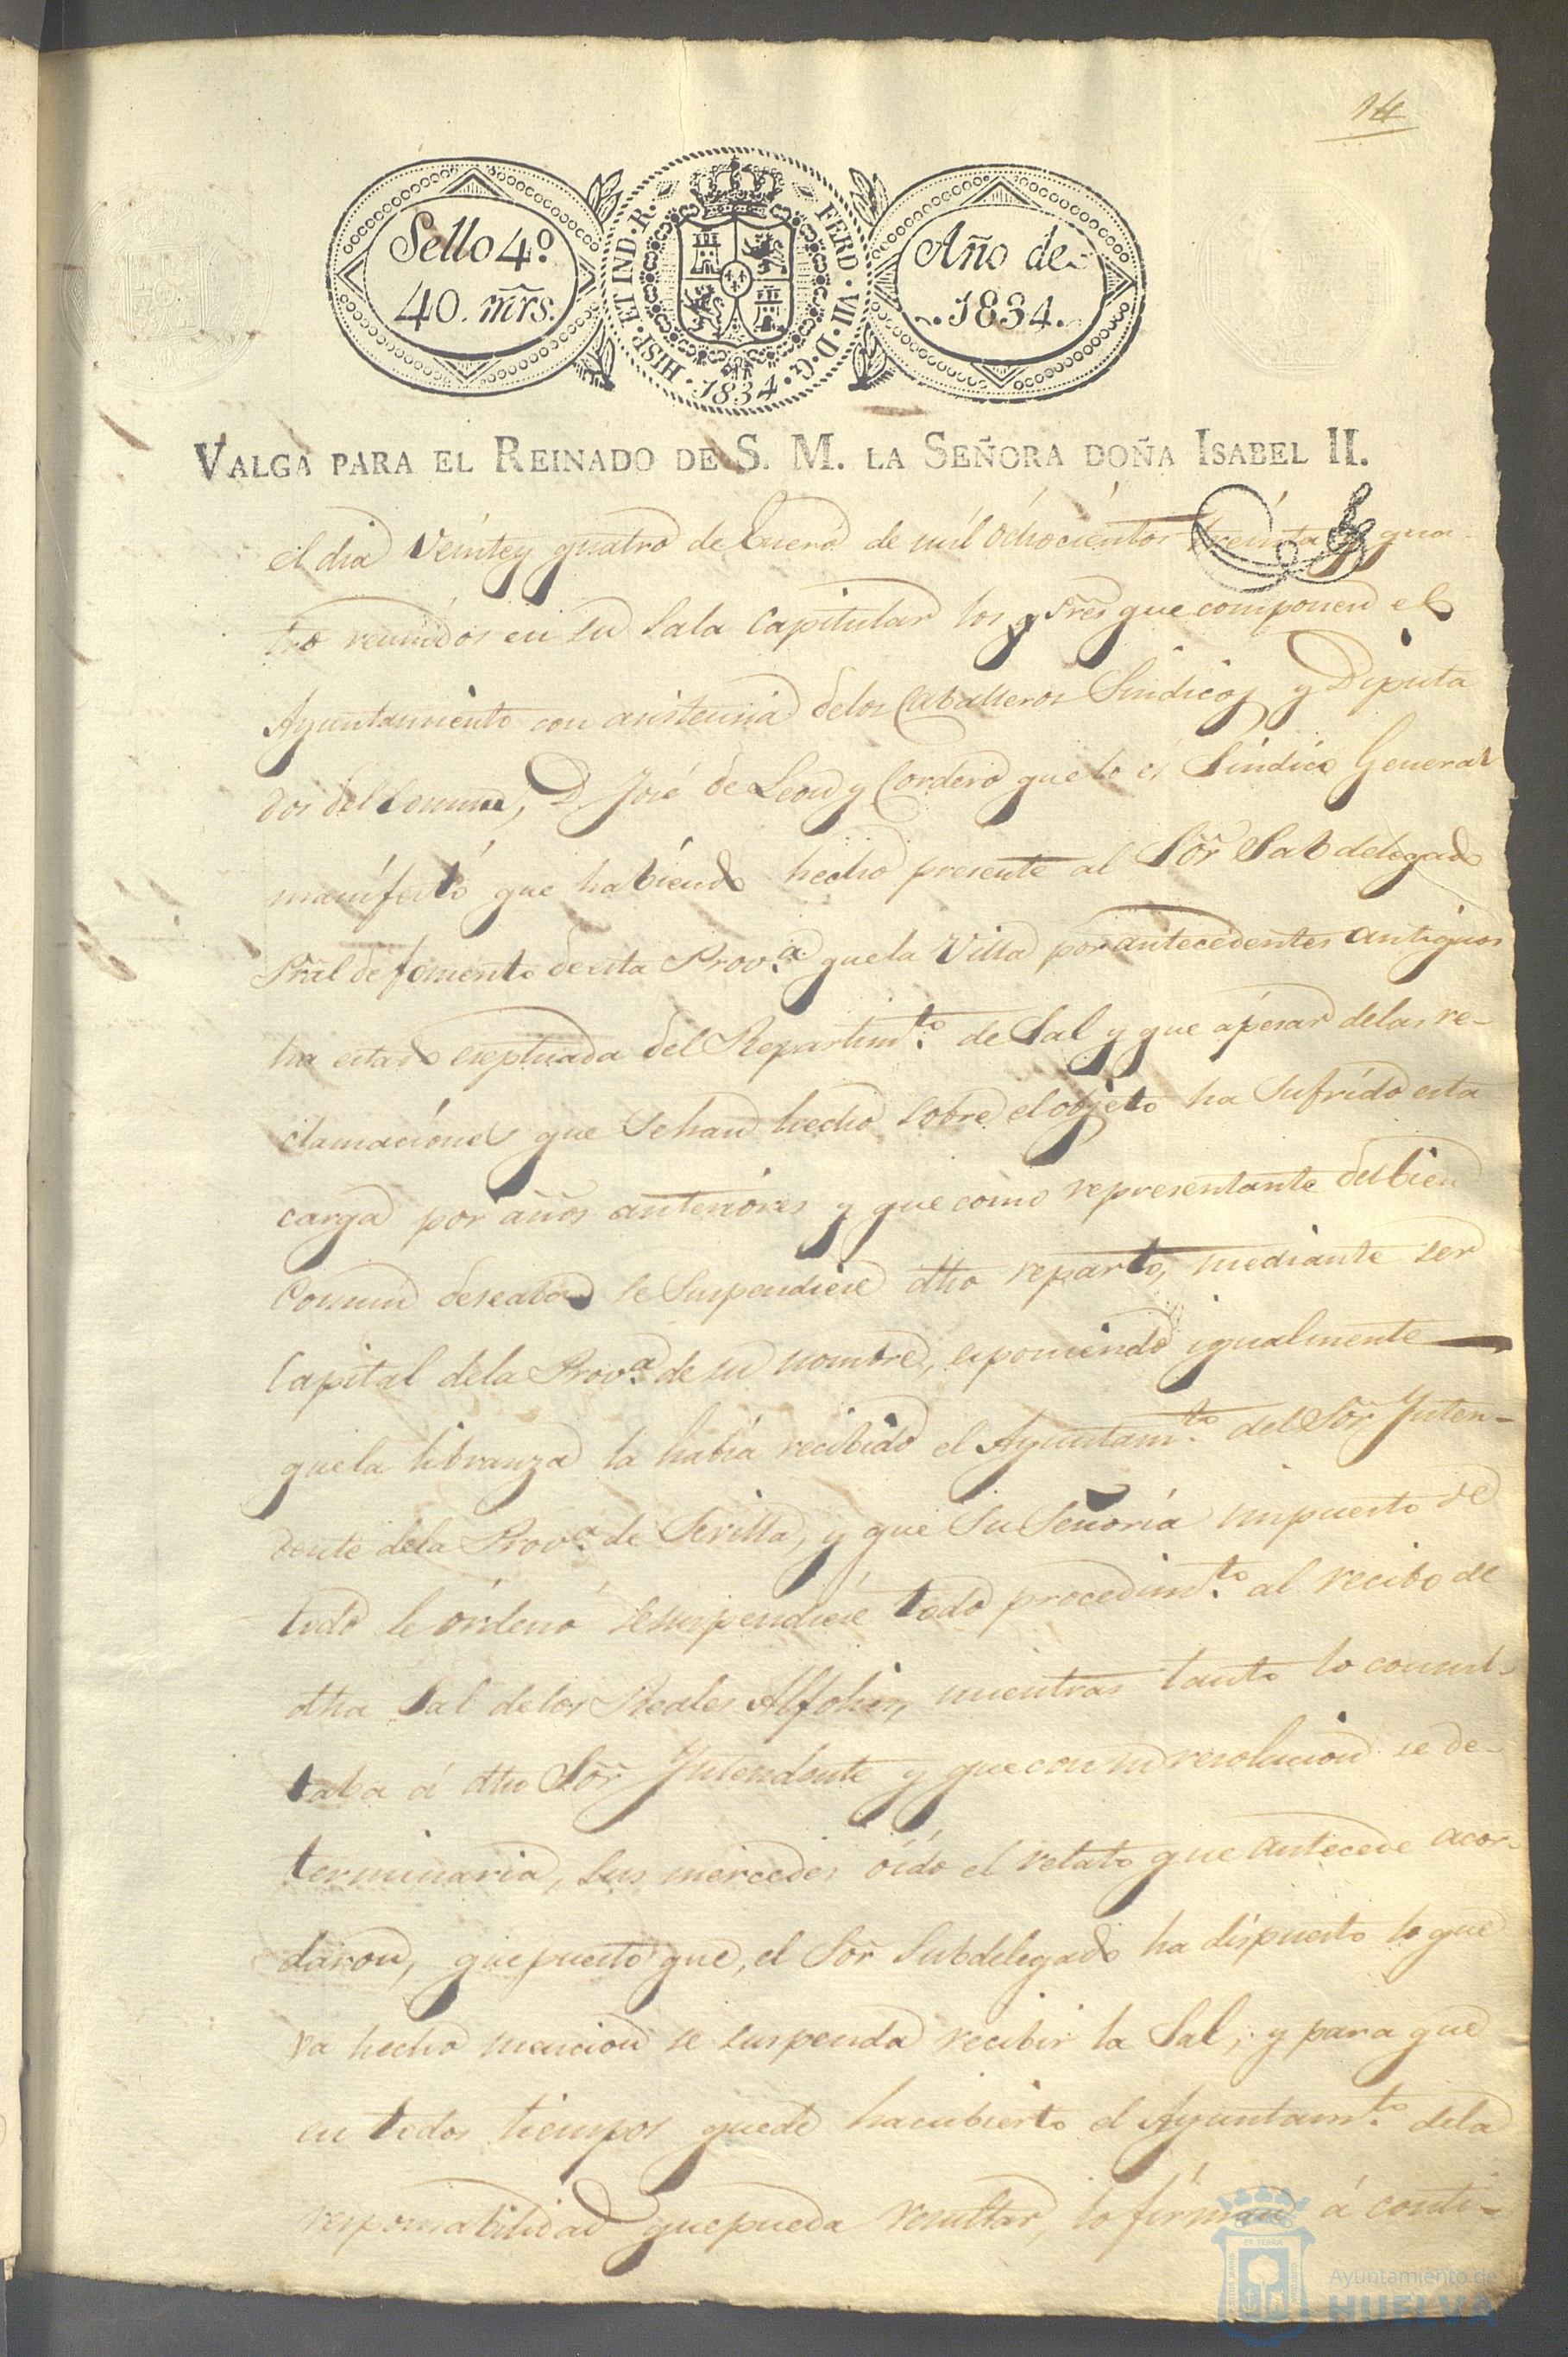 14
Sello 4º
40. mrs.
HISP. ET IND. R.
FERD. VII. D. G.
1834
Año de
1834.
VALGA PARA EL REINADO DE S. M. LA SEÑORA DOÑA ISABEL II.
el dia Veintey quatro de Enero de mil óchocientos treinta y qua-
tro reunidos en su Sala Capitular los Sres que componen el
Ayuntamiento con asistencia delos Caballeros Sindicos y Diputa
dos del Comun, D. José de Leon y Cordero que lo es Sindico General
manifestó que habiendo hecho presente al Sor Subdelegado
Pral de fomento deesta Prov.ª quela Villa por antecedentes antiguos
ha estado eseptuada del Repartim.to de Sal y que apesar delas re-
clamaciones que sehan hecho sobre el objeto ha sufrido esta
carga por años anteriores y que como representante delbien
Comun deseaba se suspendiese dho reparto, mediante ser
Capital dela Prov.ª de su nombre, esponiendo igualmente
quela libranza la habia recibido el Ayuntam.to del Sor Inten-
dente dela Prov.ª de Sevilla, y que Su Señoria impuesto de
todo le órdenó sesuspendiese todo procedim.to al recibo de
dha Sal delos Reales Alfolies, mientras tanto lo consul-
taba á dho Sor Intendente y que con su resolucion se de-
terminaria, sus mercedes oído el relato que antecede acor-
daron, quepuesto que, el Sor Subdelegado ha dispuesto lo que
va hecho mencion se suspenda recibir la Sal; y para que
en todos tiempos quede hacubierto el Ayuntam.to dela
responsabilidad quepueda resultar, lo firman á conti-
Ayuntamiento de
HUELVA